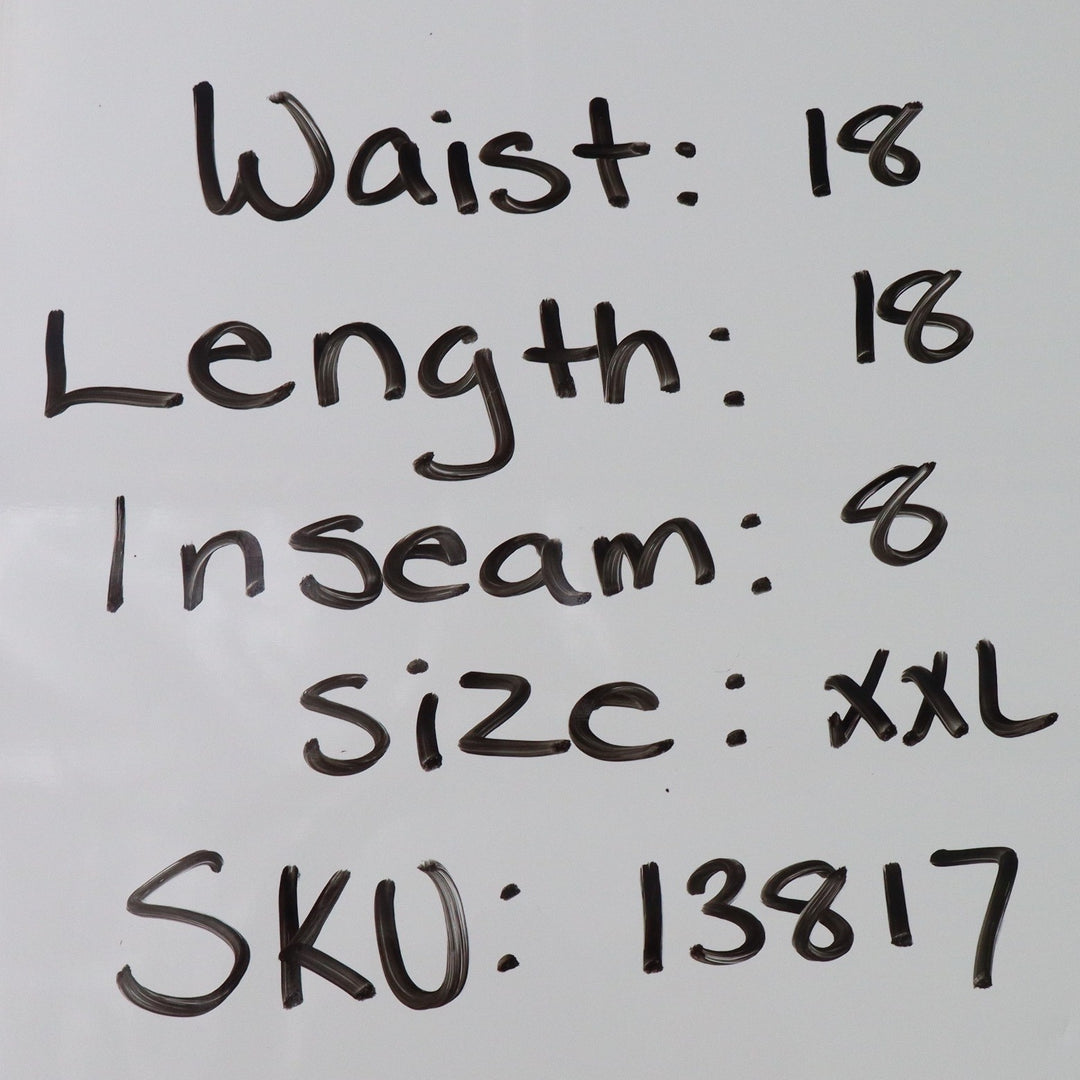 Waist: 18
Length: 18
Inseam: 8
Size: XXL
SKU: 13817